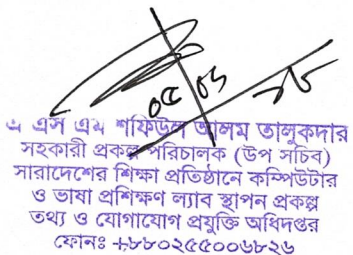 ০৫ ০৬ ১৮
এ এস এম শফিউল আলম তালুকদার
সহকারী প্রকল্প পরিচালক (উপ সচিব)
সারাদেশের শিক্ষা প্রতিষ্ঠানে কম্পিউটার
ও ভাষা প্রশিক্ষণ ল্যাব স্থাপন প্রকল্প
তথ্য ও যোগাযোগ প্রযুক্তি অধিদপ্তর
ফোনঃ +৮৮০২৫৫০০৬৮২৬